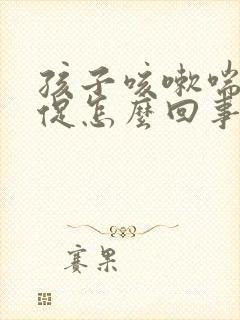 孩子咳嗽喘
促怎麼回事
賽果